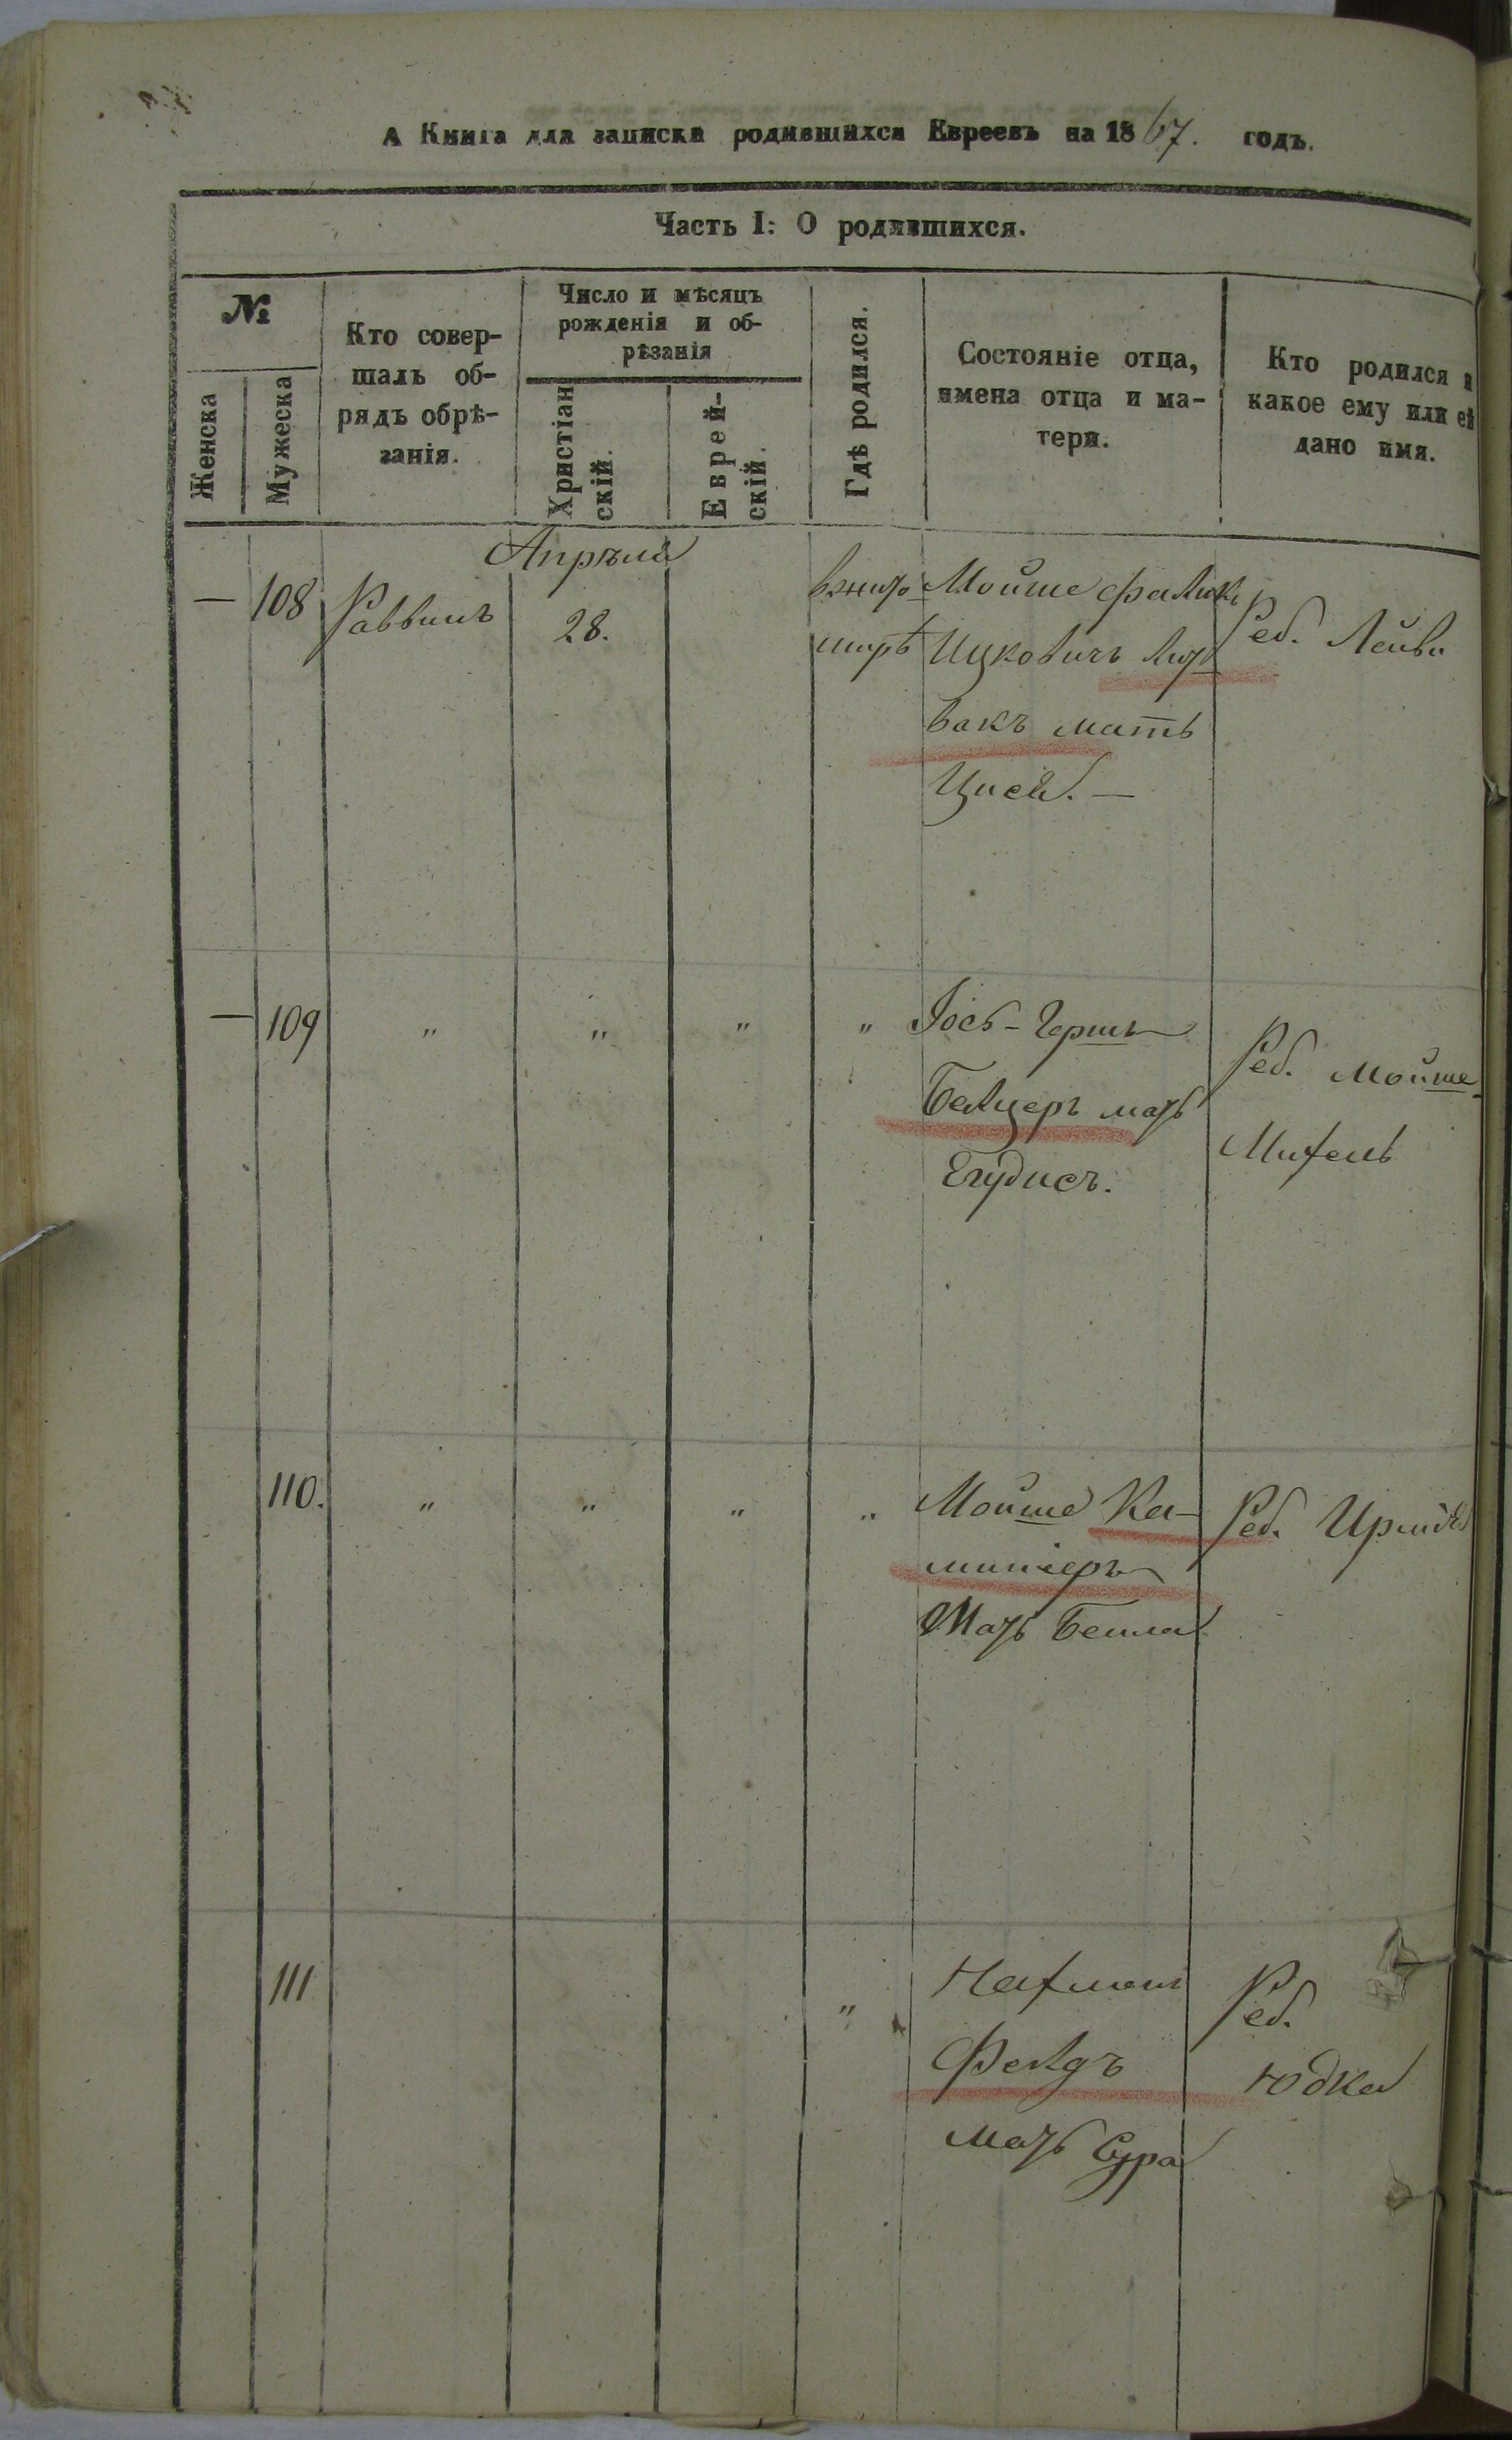 А Книга для записки родившихся Евреевъ на 1867. годъ.
Часть I: О родившихся.
№
Женска
Мужеска
Кто совер-
шалъ об-
рядъ обрѣ-
занія.
Число и мѣсяцъ
рожденія и об-
рѣзанія
Христіан
скій.
Еврей-
скій.
Гдѣ родился.
Состояніе отца,
имена отца и ма-
тери.
Кто родился и
какое ему или ей
дано имя.
Апрѣля
— 108 Раввинъ 28.
Мойше Фалик
Ицковичъ Лит
вакъ мать
Цися. —
Реб. Лейба
— 109 " " " "
Іось-Гершъ
Белцеръ мать
Егудисъ.
Реб. Мойше
Михель
110. " " " "
Мойше Ка-
Мать Бейла
Реб.
111 "
Нахманъ
Фелдъ
мать Сура
Реб.
Юдка